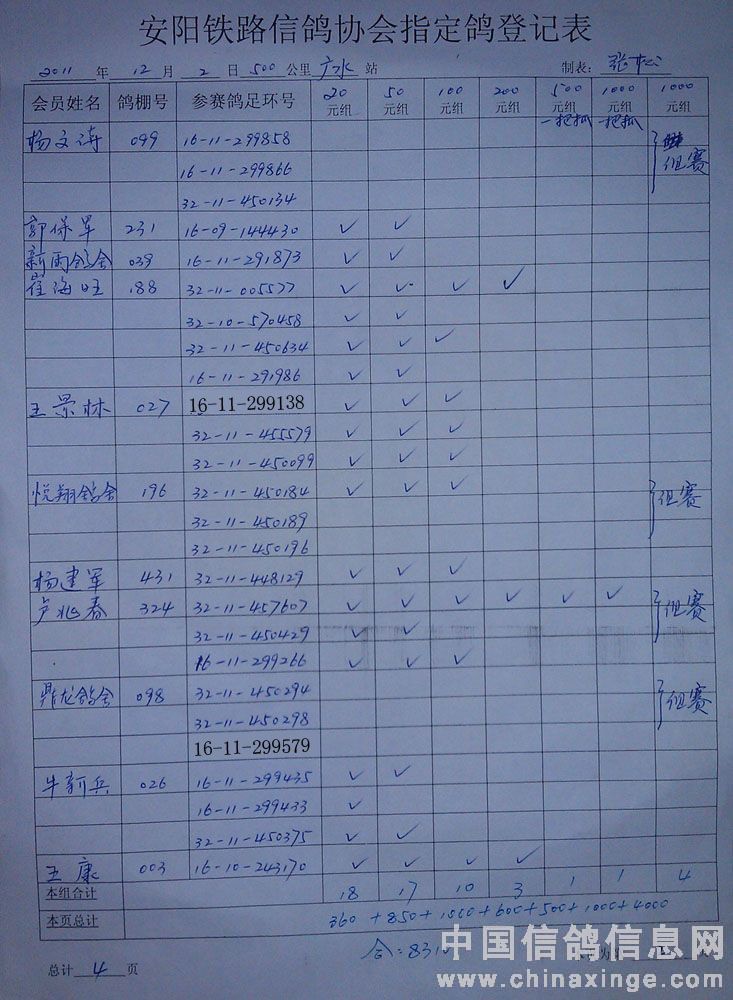 安阳铁路信鸽协会指定鸽登记表
2011 年 12 月 2 日 500 公里 广水 站 制表:
会员姓名 鸽棚号 参赛鸽足环号 20元组 50元组 100元组 200元组 500元组一把抓 1000元组一把抓 1000元组
杨文涛 099 16-11-299858 组赛
16-11-299866
32-11-450134
郭保军 231 16-09-144430 ✓ ✓
新雨鸽舍 039 16-11-291873 ✓ ✓
崔海旺 188 32-11-005577 ✓ ✓ ✓ ✓
32-10-570458 ✓ ✓
32-11-450634 ✓ ✓ ✓
16-11-291986 ✓ ✓
王景林 027 16-11-299138 ✓ ✓ ✓
32-11-455579 ✓ ✓ ✓
32-11-450099 ✓ ✓ ✓
悦翔鸽舍 196 32-11-450184 ✓ ✓ ✓ 组赛
32-11-450189
32-11-450196
杨建军 431 32-11-448129 ✓ ✓ ✓
卢兆春 324 32-11-457607 ✓ ✓ ✓ ✓ ✓ ✓ 组赛
32-11-450429 ✓ ✓
16-11-299266 ✓ ✓ ✓
鼎龙鸽舍 098 32-11-450294 组赛
32-11-450298
16-11-299579
牛新兵 026 16-11-299435 ✓ ✓
16-11-299433 ✓
32-11-450375 ✓ ✓
王康 003 16-10-243170 ✓ ✓ ✓ ✓
本组合计 18 17 10 3 1 1 4
本页总计 360+850+1000+600+500+1000+4000
合:831
总计 4 页
中国信鸽信息网
www.chinaxinge.com